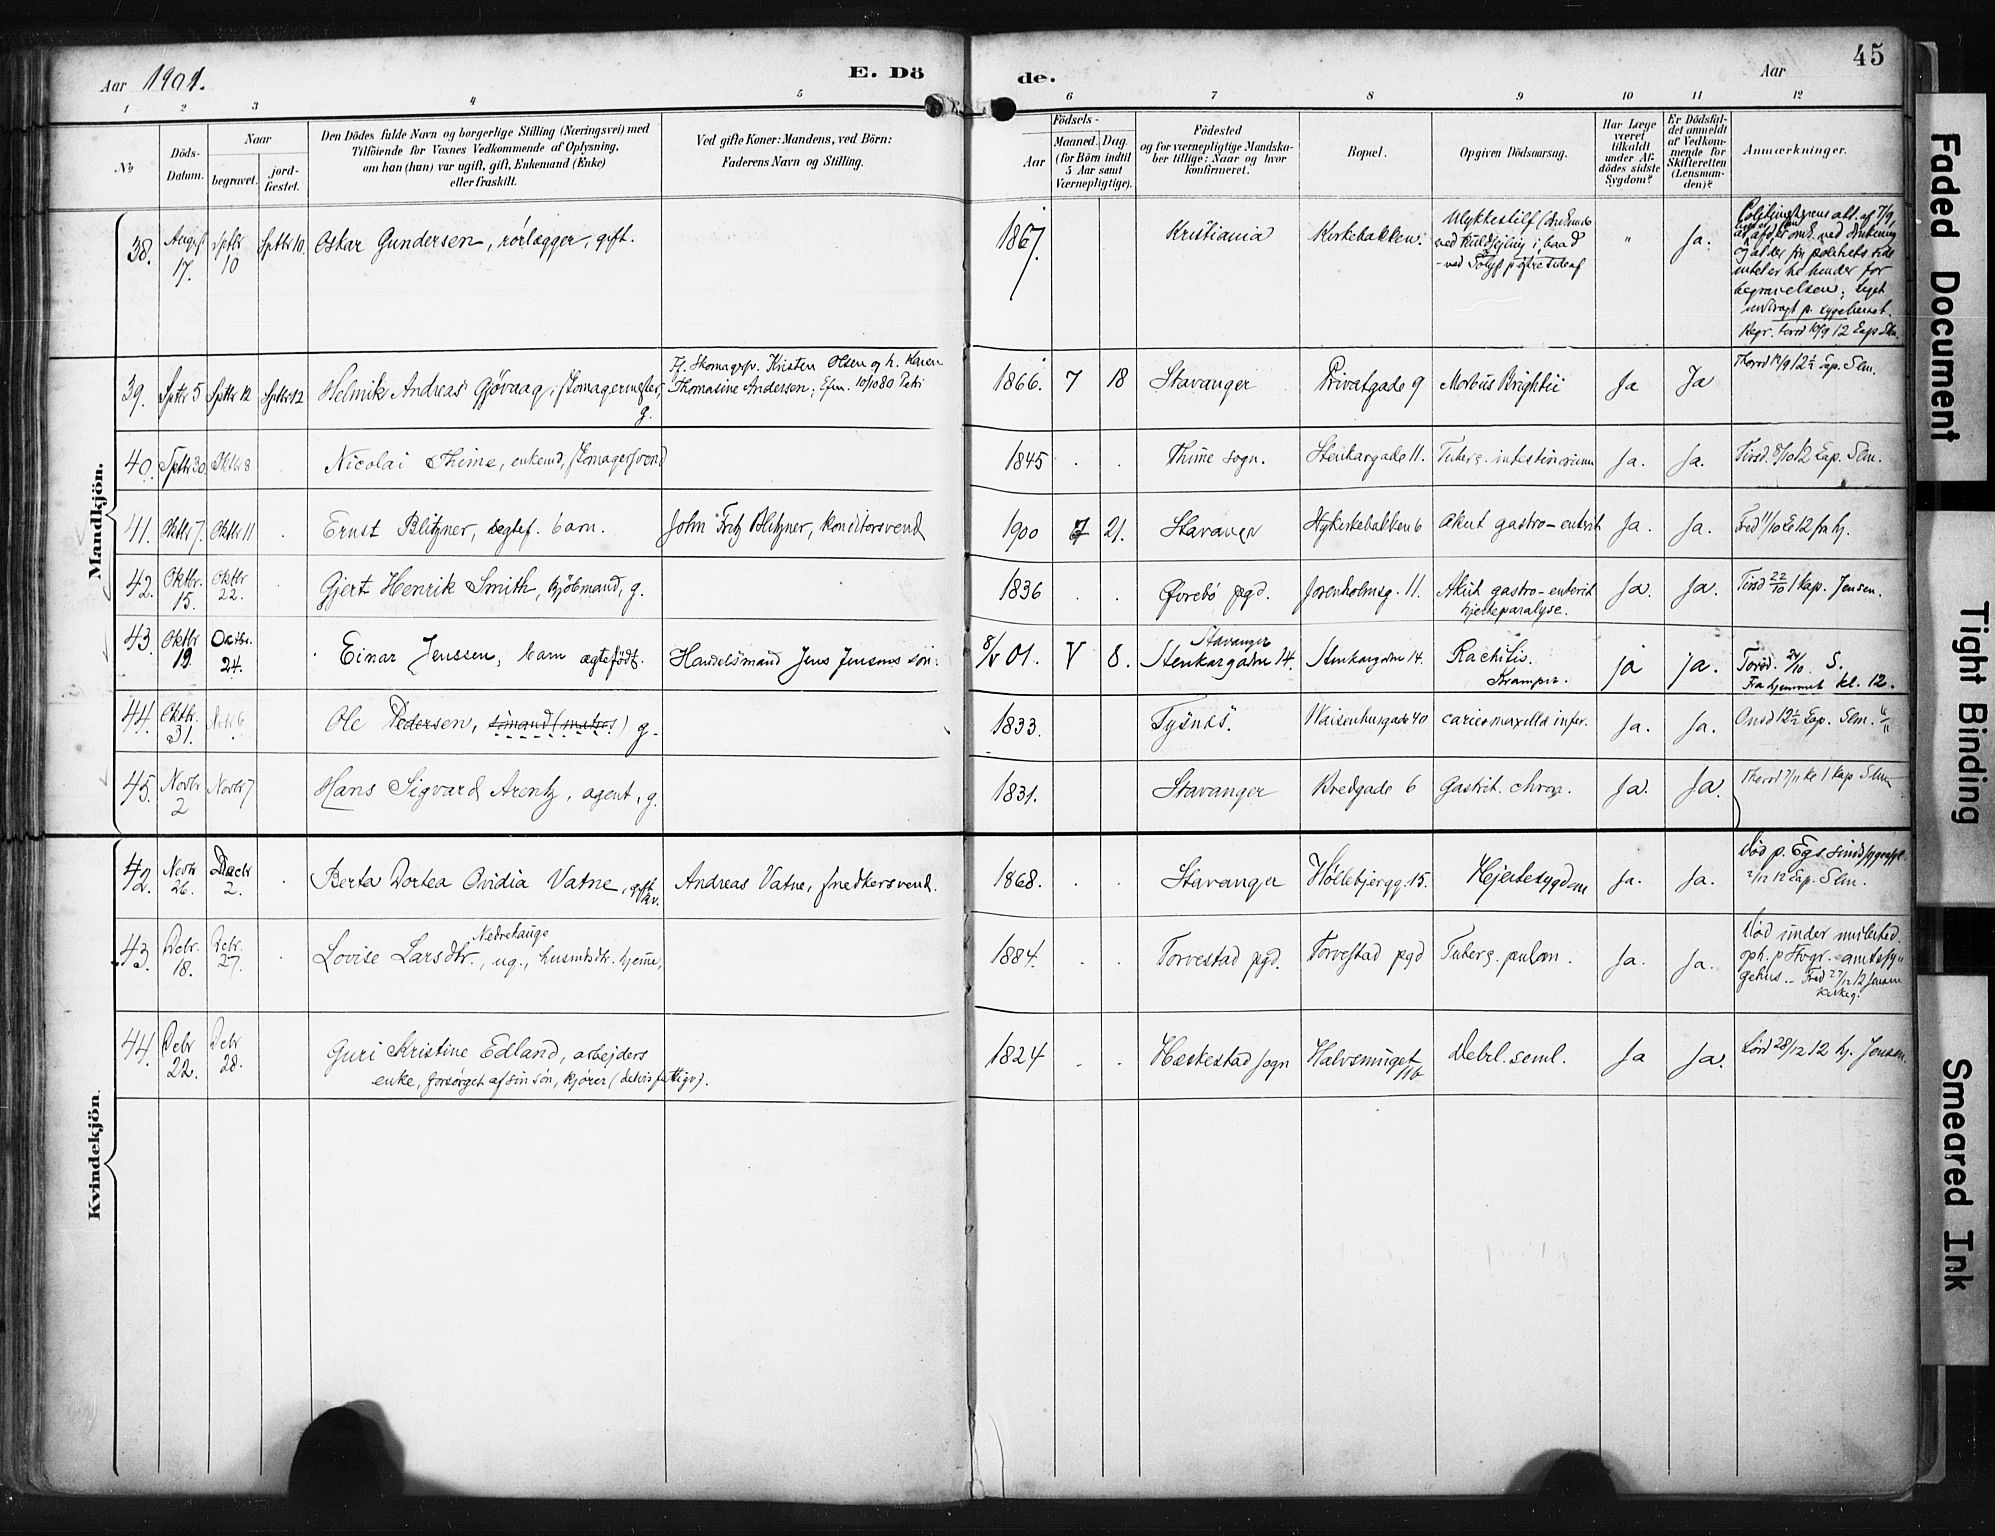 Aar 1901.
E. Dö
de.
Aar
45
1 2 3 4 5 6 7 8 9 10 11 12
No
Döds-Datum.
Naar
begravet.
jord-fæstet.
Den Dödes fulde Navn og borgerlige Stilling (Næringsvei) med
Tilföiende for Voxnes Vedkommende af Oplysning,
om han (hun) var ugift, gift, Enkemand (Enke)
eller fraskilt.
Ved gifte Koner: Mandens, ved Börn:
Faderens Navn og Stilling.
Födsels-
Aar
Maaned. Dag
(for Börn indtil
5 Aar samt
Værnepligtige).
Födested
og for værnepligtige Mandska-
ber tillige: Naar og hvor
konfirmeret.
Bopæl.
Opgiven Dödsaarsag.
Har Læge
været
tilkaldt
under Af-
dödes sidste
Sygdom?
Er Dödsfal-
det anmeldt
af Vedkom-
mende for
Skifteretten
(Lensman-
den)?
Anmærkninger.
Mandkjön.
38. August 17. Sptbr 10 Sptbr 10. Oskar Gundersen, rörlægger, gift. 1867. Kristiania Kirkebakken. " Ja.
begravelsen;
39. Sptbr 5 Sptbr 12 Sptbr 12 Helmik Andreas Gjövaag, skomagermester, g. Kristen Olsen og h. Karen
Thomasine Andersen; 1866. 7 18 Stavanger Privatgade 9 Morbus Brightii Ja Ja
40. Sptbr 30 Oktbr 8 Nicolai Thime, enkemd, skomagersvend 1845 Thime sogn. Stenkargade 11. Tuberc. intestinorum Ja. Ja. Tirsd. 8/10 12 Kap. Slm.
41. Oktbr 7. Oktbr 11 Ernst Blitzner, ægtef. barn. John Fritz Blitzner, konditorsvend 1900 7 21. Stavanger Nykirkebakken 6 Akut gastro-enterit Ja. Ja.
42. Oktbr. 15. Oktbr 22. Gjert Henrik Smith, kjöbmand, g. 1836 Øvrebö pgd. Jorenholmsg. 11. Akut gastro-enterit
hjerteparalyse. Ja. Ja. Tirsd 22/10 1 kap. Jensen.
43. Oktbr 19. Octbr. 24. Einar Jenssen, barn ægtefödt. Handelsmand Jens Jensens sön. 8/V 01. V 8. Stavanger
Stenkargaden 14. Stenkargaden 14. Rachitis.
Kramper. ja ja. Torsd. 24/10. S.
Fra hjemmet kl. 12.
44. Oktbr. 31. Novbr 6 Ole Pedersen, sömand (matros) g. 1833. Tysnes. Waisenhusgade 40 caries maxilla infer. Ja. Ja. Onsd 12½ Kap. Slm.
45. Novbr 2 Novbr 7 Hans Sigvard Arentz, agent, g. 1831. Stavanger Bredgade 6 Gastrit. chron. Ja. Ja.
Kvindekjön.
42. Novbr 26. Decbr 2. Berta Dortea Ovidia Vatne, gift Andreas Vatne, snedkersvend. 1868. Stavanger Höllebjergg. 15. Hjertesygdom Ja. Ja. Död p. Egs sindssygeasyl.
2/12 12 Kap. Slm.
43. Debr. 18. Debr. 27. Lovise Larsdtr. Nedrehauge, ug., husmdsdtr. hjeme, 1884. Torvestad pgd. Torvestad pgd Tuberc. pulm. Ja. Ja. Död under midlertid.
oph. p Stvgr. amtssy-
gehus. Fred 27/12 12 Jensen
kirkeg.
44. Debr 22. Debr 28. Guri Kristine Edland, arbejders
enke, forsörget af sin sön, kjörer (delvis fattigv). 1824 Heskestad sogn Halvemniget 11b Debil. senil. Ja Ja. Lörd 28/12 12 hj. Jensen.
Faded Document
Tight Binding
Smeared Ink